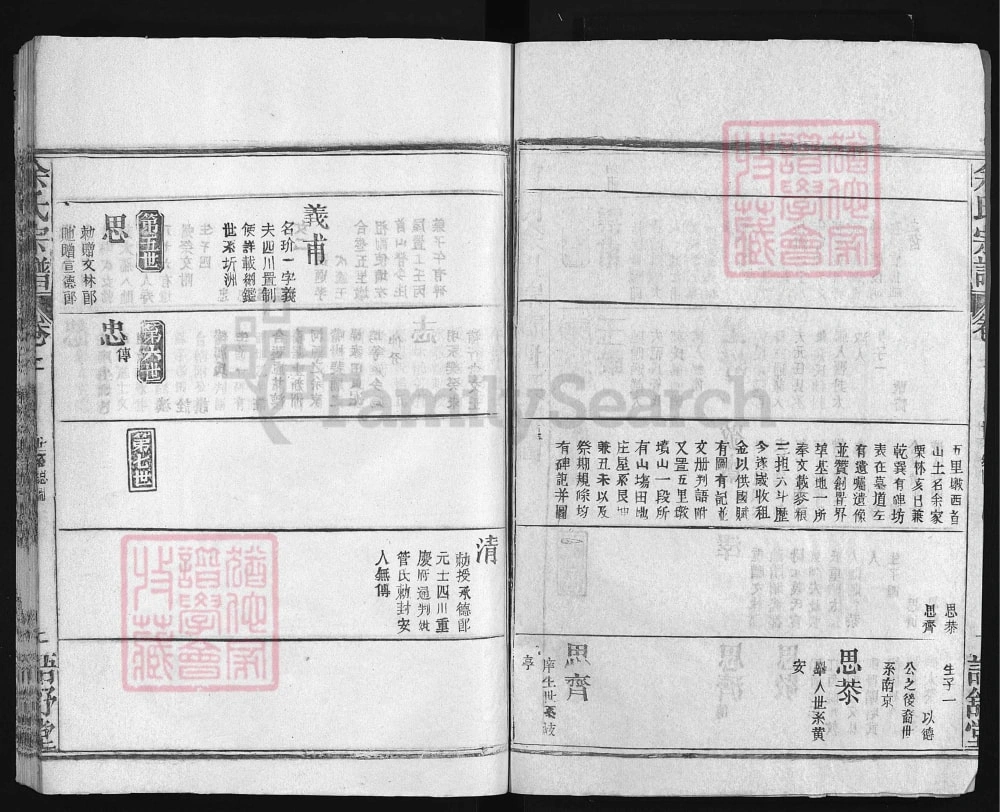 五里墩西首
山土名余家
栗林亥日兼
乾巽有碑坊
表在墓道左
有遺囑遺像
並贊創置界
塋基地一所
奉文載麥粮
三担六斗歷
今遂歲收租
金以供國賦
有圖有記並
文册判語附
又置五里墩
墳山一段所
有山塲田地
庄屋系艮坤
兼丑未以及
祭期規條均
有碑記并圖
思恭
思齊
生子一
以德
公之後裔世
系南京
思恭
舉人世系黄
安
思齊
庠生世系岐
亭
余氏宗譜
義甫
名玠一字義
夫四川置制
使詳載綱鑑
世系圻洲
第五世
思
勅贈文林郎
貤贈宣德郎
第六世
忠
傳
第七世
清
勅授承德郎
元士四川重
慶府通判娶
管氏勅封安
人無傳
FamilySearch